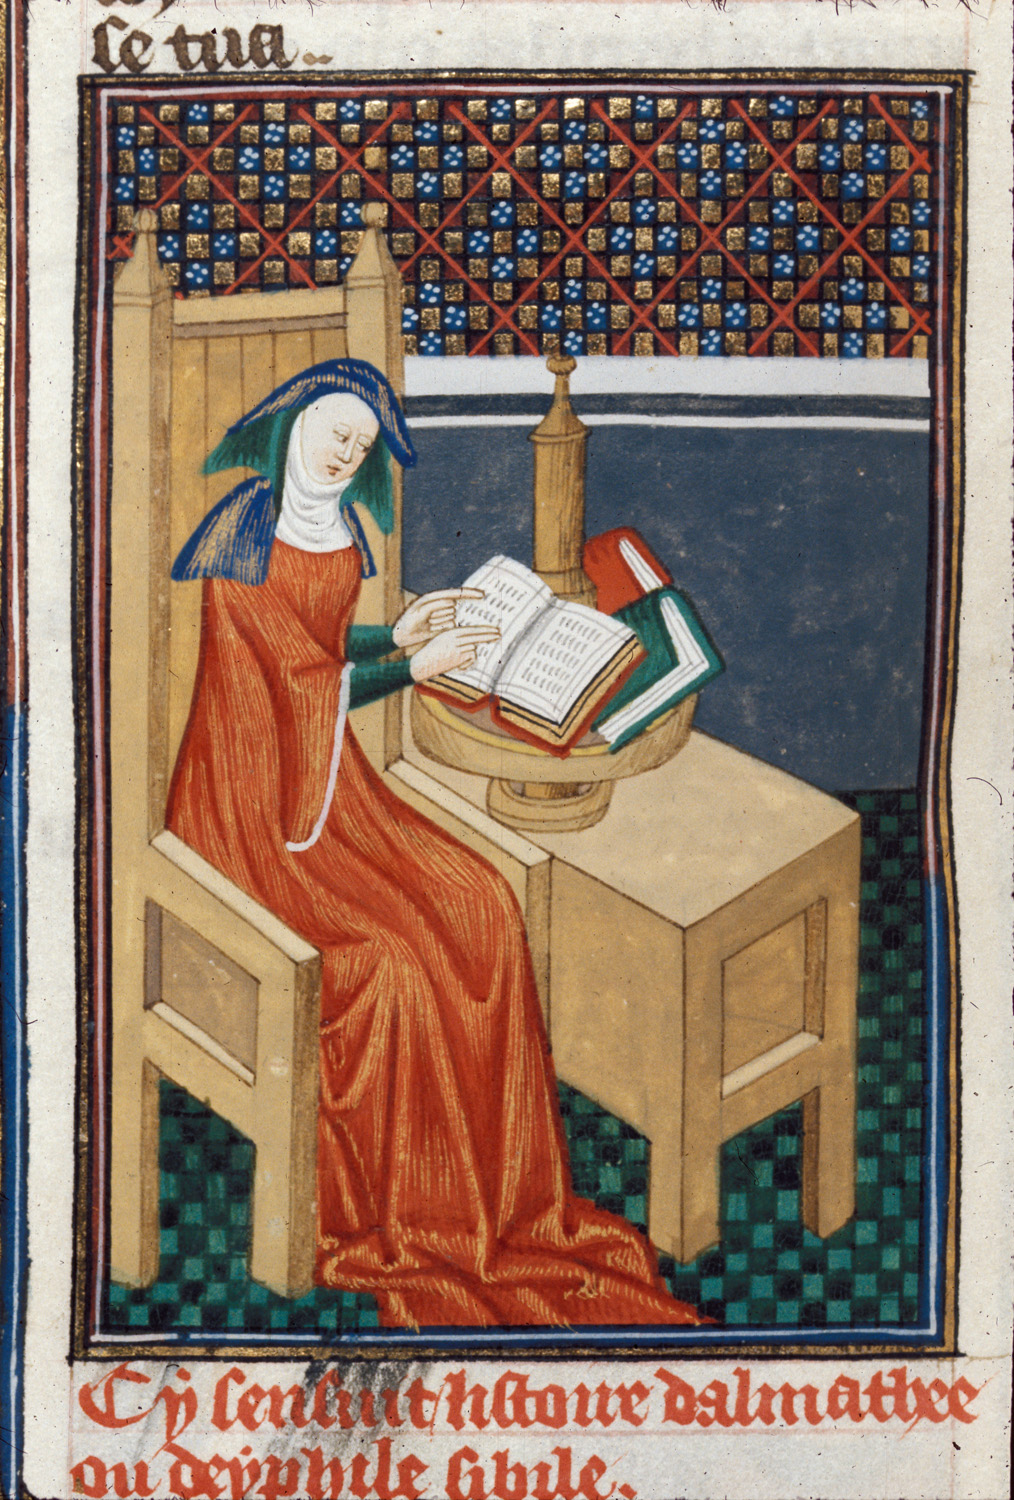 se tua..
Cy sensuit/histoire dalmathee
ou deÿphile sibile.